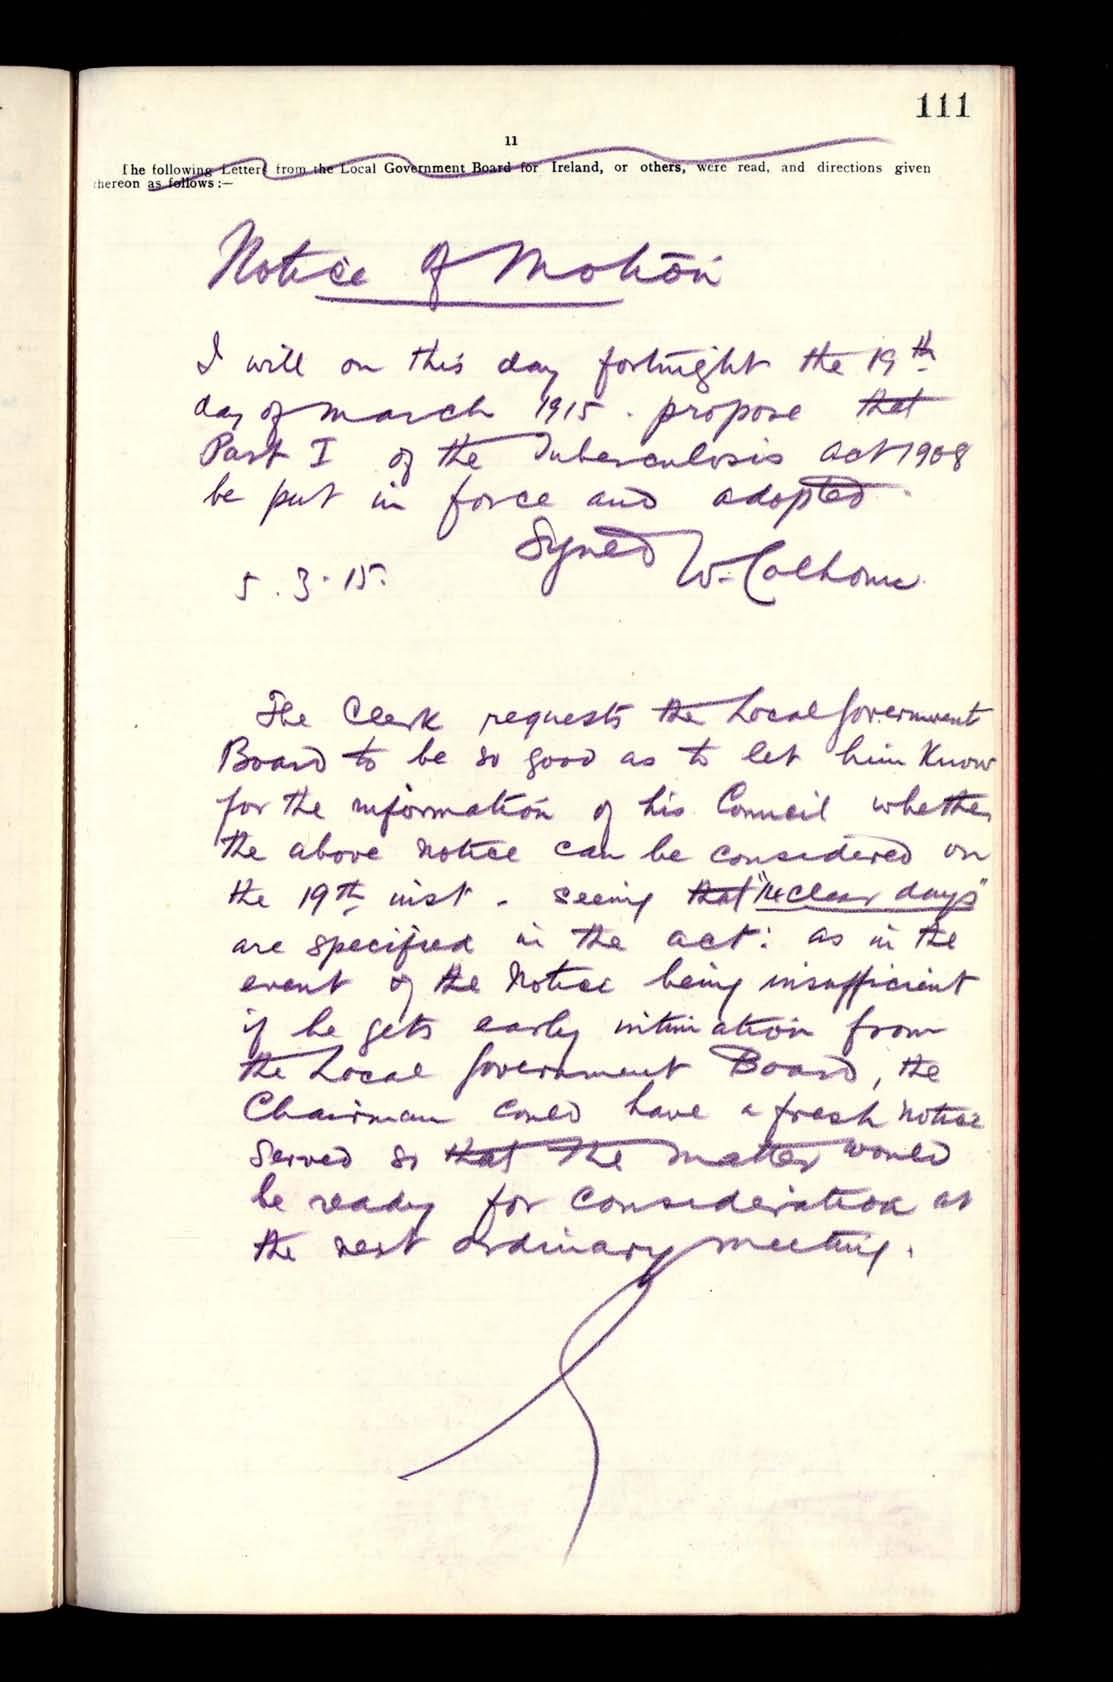 111
11
The following Letters from the Local Government Board for Ireland, or others, were read, and directions given
thereon as follows :—
Notice of Motion
I will on this day fortnight the 19th
day of March 1915. propose that
Part I of the Tuberculosis act 1908
be put in force and adopted.
Signed W. Calhoun
5.3.15.
The Clerk requests the Local Government
Board to be so good as to let him know
for the information of his Council whether
the above notice can be considered on
the 19th inst. - seeing that "14 clear days"
are specified in the act: as in the
event of the Notice being insufficient
if he gets early intimation from
the Local Government Board, the
Chairman could have a fresh notice
served so that the matter would
be ready for consideration at
the next ordinary meeting.